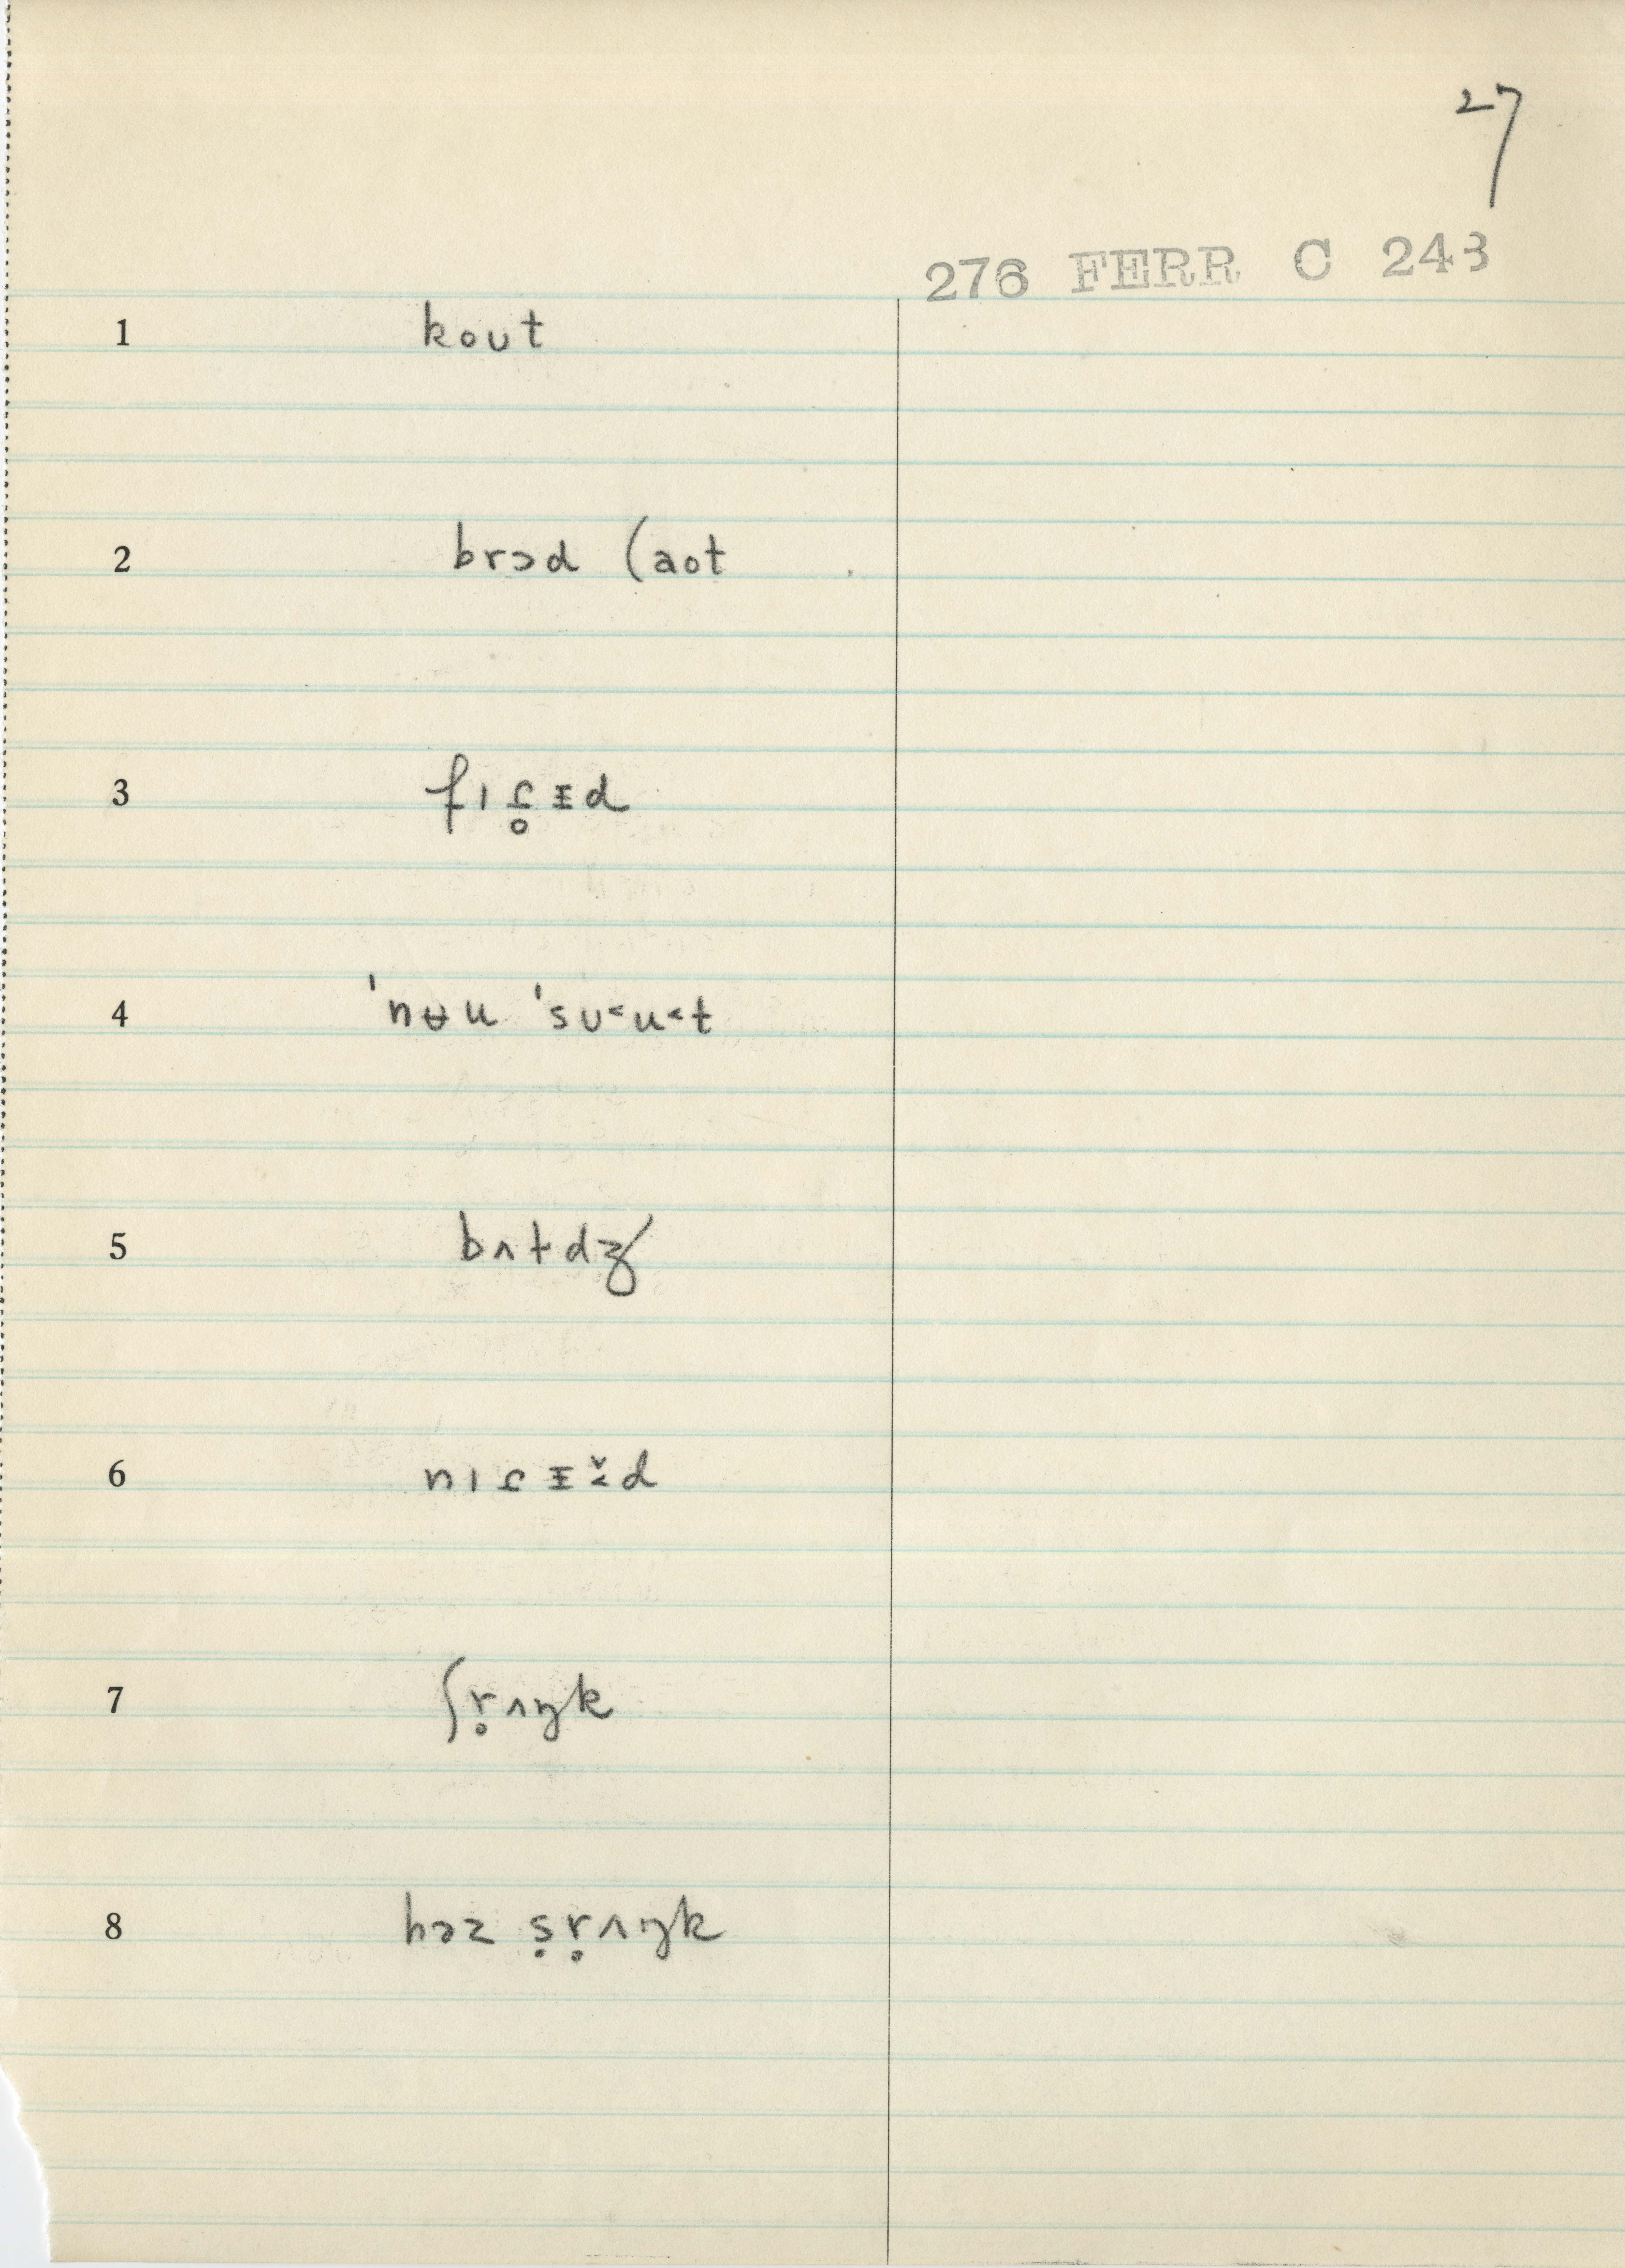 27
276 FERR C 243
1 koʊt
2 brɔd (aot
3 fɪɾ̥ᵻd
4 ˈnʉu ˈsʊ˂u˂t
5 bʌɫdʒ
6 nɪɾᵻ̌˂d
7 ʃr̥ʌŋk
8 həz ṣr̥ʌŋk